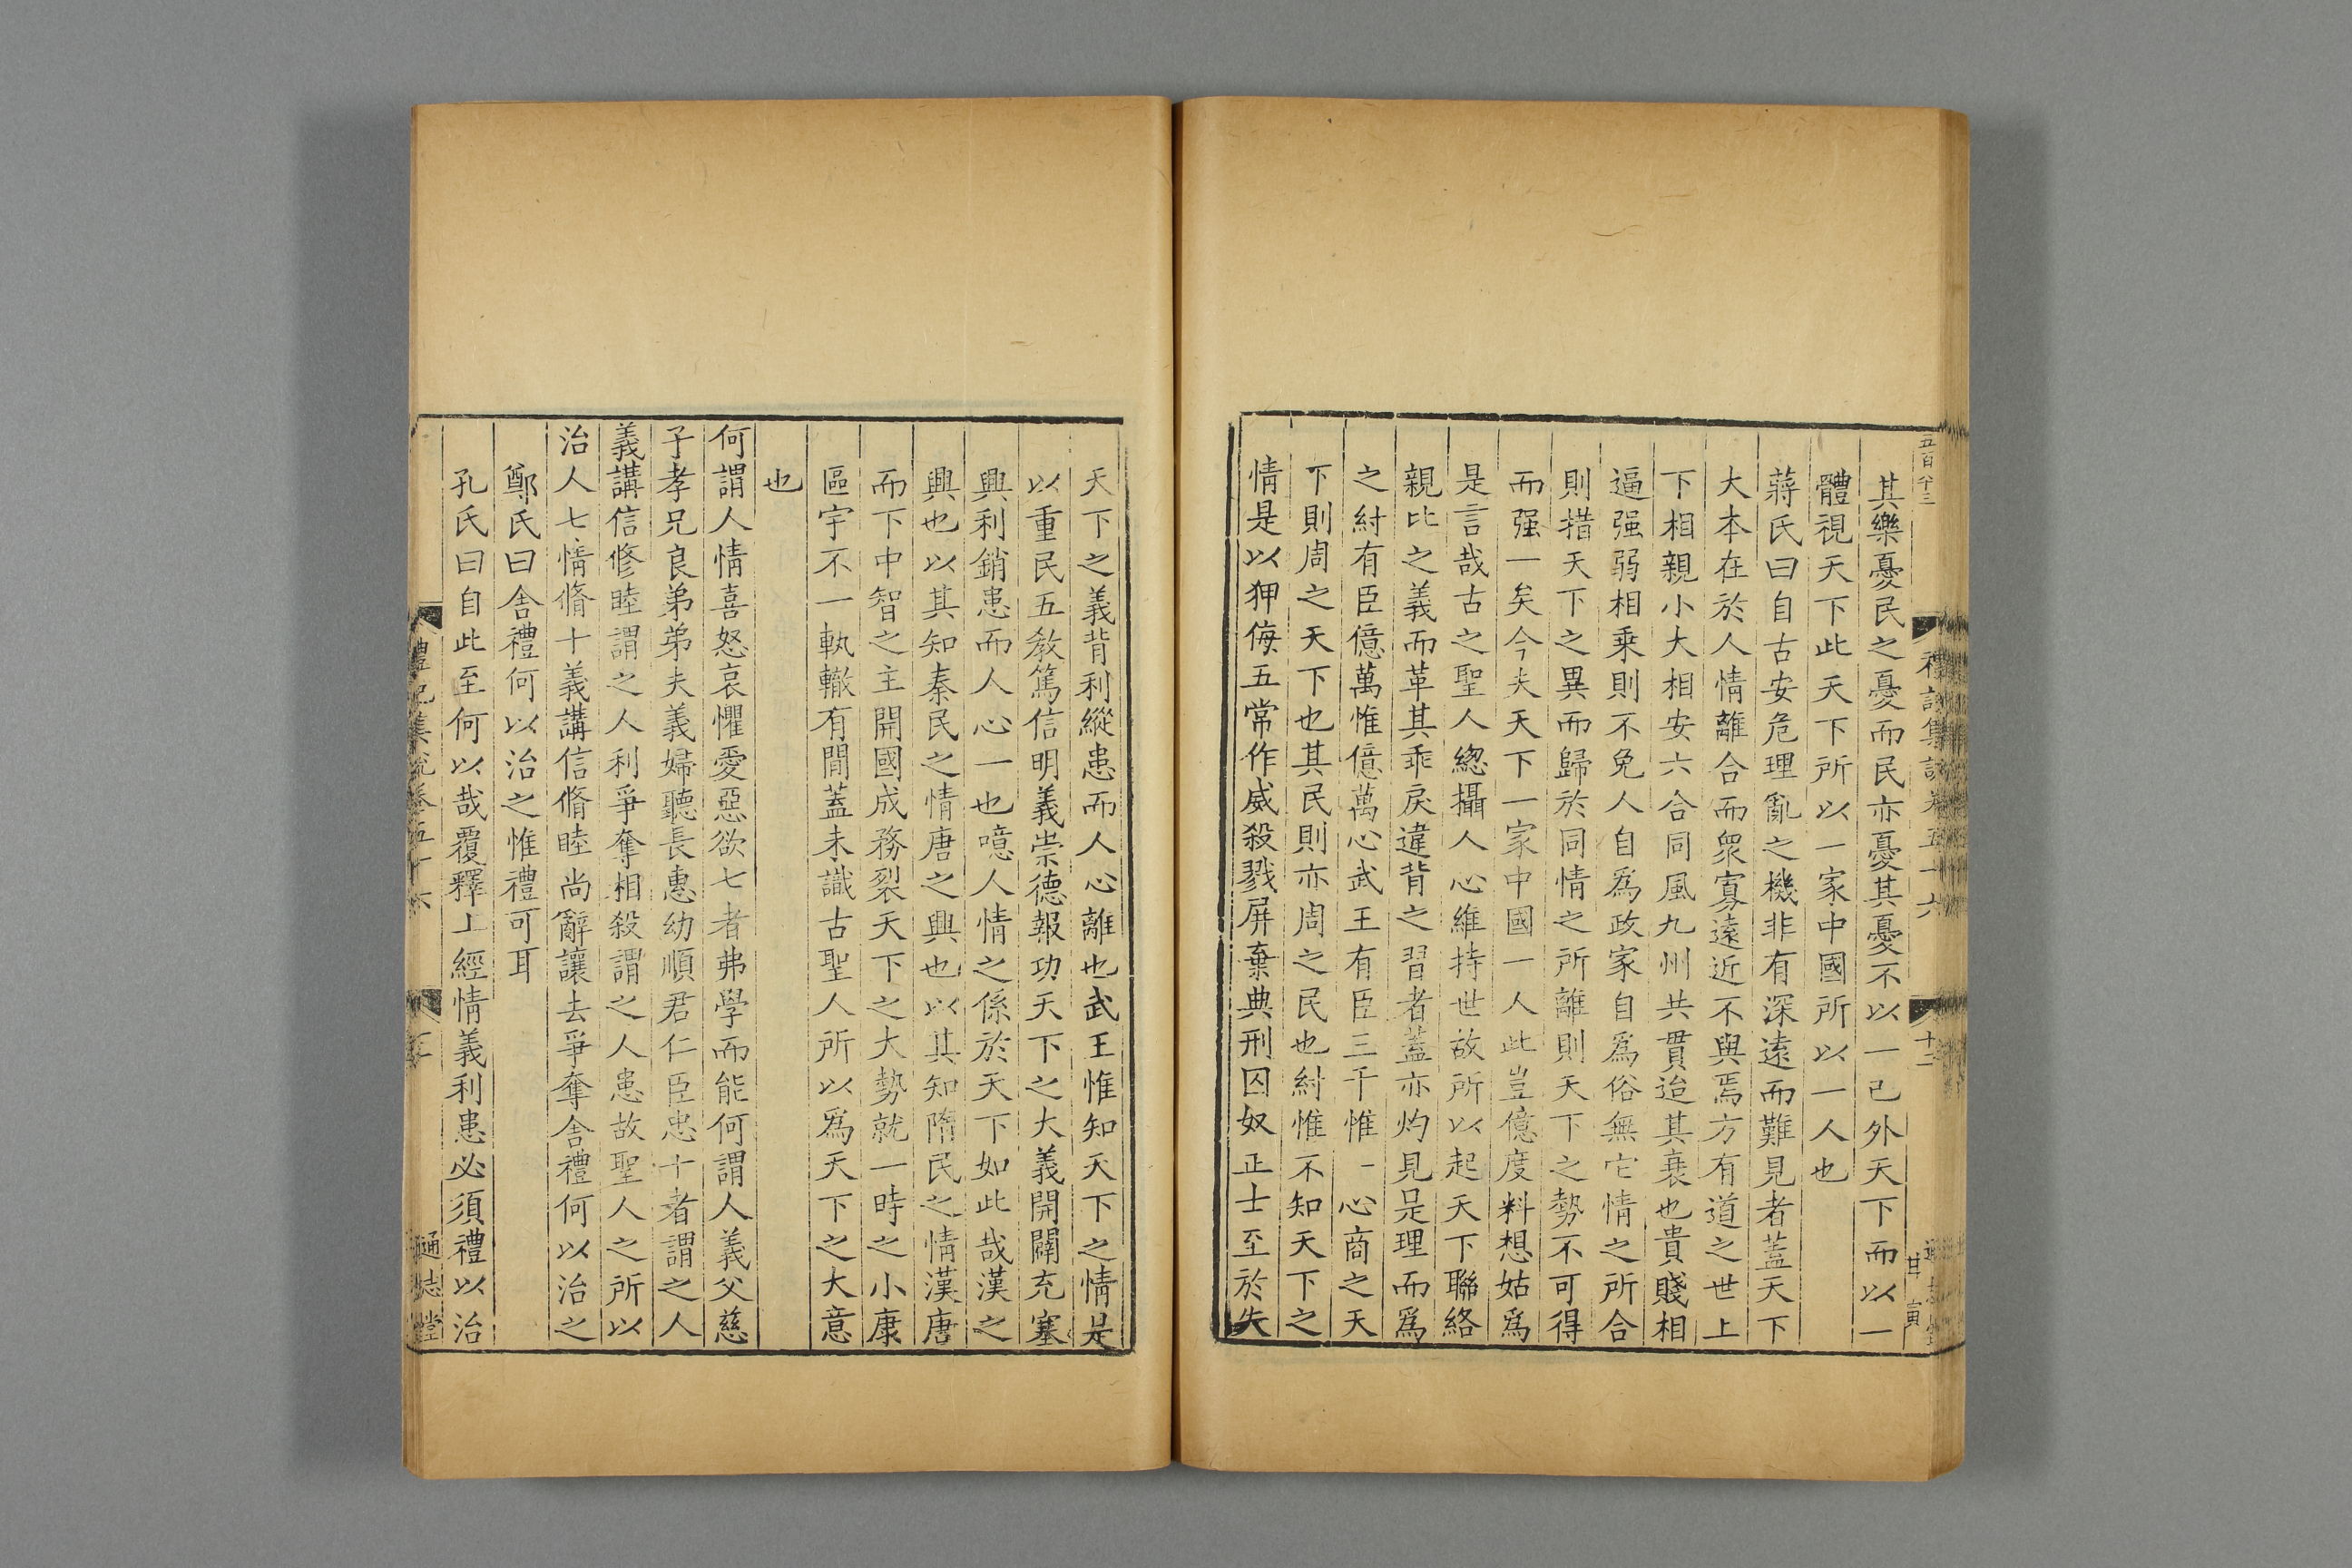 五百八十三
禮記集說卷五十六
十二
甘寅
其樂憂民之憂而民亦憂其憂不以一己外天下而以一
體視天下此天下所以一家中國所以一人也
蔣氏曰自古安危理亂之機非有深遠而難見者蓋天下
大本在於人情離合而衆寡遠近不與焉方有道之世上
下相親小大相安六合同風九州共貫迨其衰也貴賤相
逼强弱相乗則不免人自爲政家自爲俗無它情之所合
則措天下之異而歸於同情之所離則天下之勢不可得
而强一矣今夫天下一家中國一人此豈億度料想姑爲
是言哉古之聖人緫攝人心維持世故所以起天下聯絡
親比之義而革其乖戾違背之習者蓋亦灼見是理而爲
之紂有臣億萬惟億萬心武王有臣三千惟一心商之天
下則周之天下也其民則亦周之民也紂惟不知天下之
情是以狎侮五常作威殺戮屏棄典刑囚奴正士至於失
天下之義背利縱患而人心離也武王惟知天下之情是
以重民五教篤信明義崇德報功天下之大義開闢充塞
興利銷患而人心一也噫人情之係於天下如此哉漢之
興也以其知秦民之情唐之興也以其知隋民之情漢唐
而下中智之主開國成務裂天下之大勢就一時之小康
區宇不一軌轍有閒蓋未識古聖人所以爲天下之大意
也
何謂人情喜怒哀懼愛惡欲七者弗學而能何謂人義父慈
子孝兄良弟弟夫義婦聽長惠幼順君仁臣忠十者謂之人
義講信修睦謂之人利爭奪相殺謂之人患故聖人之所以
治人七情脩十義講信脩睦尚辭讓去爭奪舍禮何以治之
鄭氏曰舍禮何以治之惟禮可耳
孔氏曰自此至何以哉覆釋上經情義利患必須禮以治
禮記集說卷五十六
通志堂